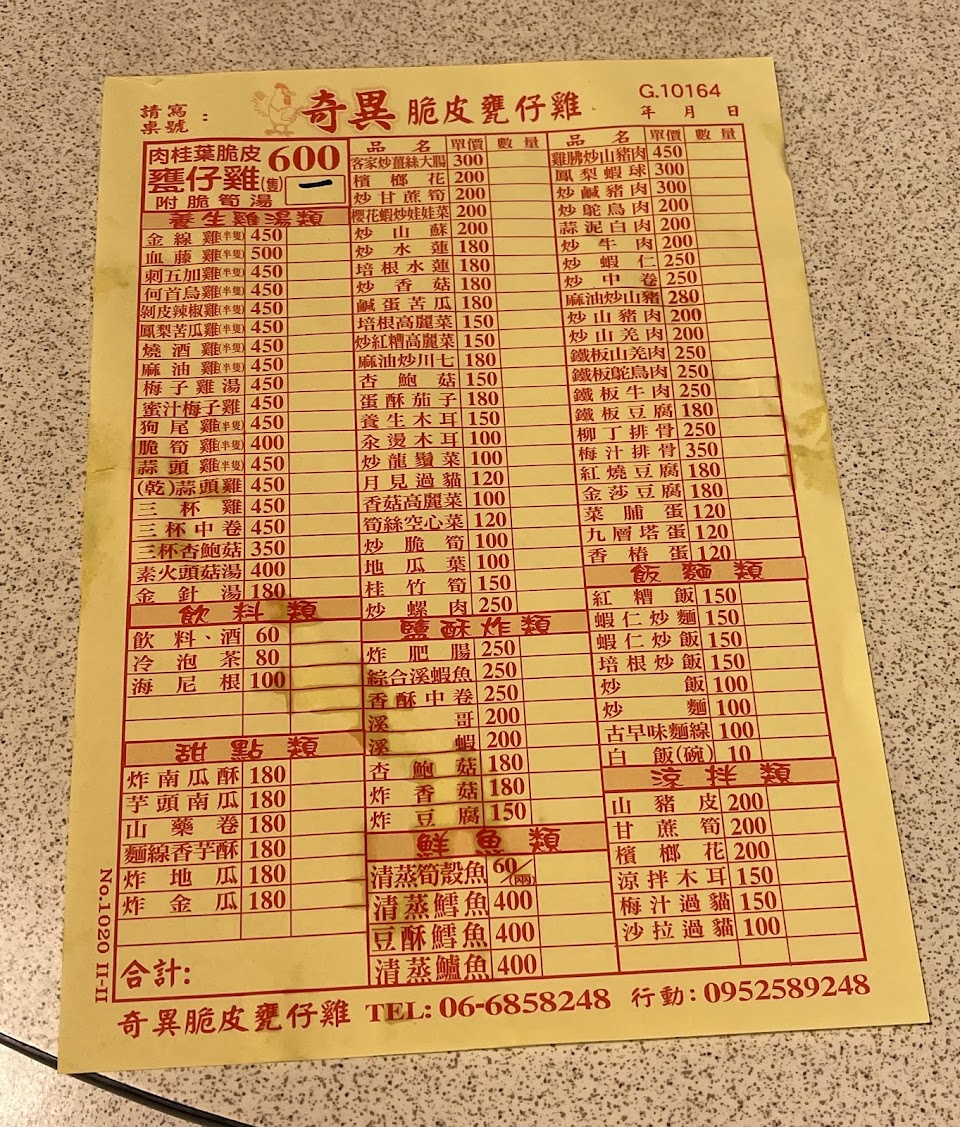 請寫桌號：
奇異 脆皮甕仔雞
G.10164
年 月 日
肉桂葉脆皮 600
甕仔雞(隻) 一
附脆筍湯
養生雞湯類
金線雞(半隻) 450
血藤雞(半隻) 500
刺五加雞(半隻) 450
何首烏雞(半隻) 450
剝皮辣椒雞(半隻) 450
鳳梨苦瓜雞(半隻) 450
燒酒雞(半隻) 450
麻油雞(半隻) 450
梅子雞湯 450
蜜汁梅子雞 450
狗尾雞(半隻) 450
脆筍雞(半隻) 400
蒜頭雞(半隻) 450
(乾)蒜頭雞 450
三杯雞 450
三杯中卷 450
三杯杏鮑菇 350
素火頭菇湯 400
金針湯 180
飲料類
飲料、酒 60
冷泡茶 80
海尼根 100
甜點類
炸南瓜酥 180
芋頭南瓜 180
山藥卷 180
麵線香芋酥 180
炸地瓜 180
炸金瓜 180
合計:
品名 單價 數量
客家炒薑絲大腸 300
檳榔花 200
炒甘蔗筍 200
櫻花蝦炒娃娃菜 200
炒山蘇 200
炒水蓮 180
培根水蓮 180
炒香菇 180
鹹蛋苦瓜 180
培根高麗菜 150
炒紅糟高麗菜 150
麻油炒川七 180
杏鮑菇 150
蛋酥茄子 180
養生木耳 150
汆燙木耳 100
炒龍鬚菜 100
月見過貓 120
香菇高麗菜 100
筍絲空心菜 120
炒脆筍 100
地瓜葉 100
桂竹筍 150
炒螺肉 250
鹽酥炸類
炸肥腸 250
綜合溪蝦魚 250
香酥中卷 250
溪哥 200
溪蝦 200
杏鮑菇 180
炸香菇 180
炸豆腐 150
鮮魚類
清蒸筍殼魚 60/(兩)
清蒸鱈魚 400
豆酥鱈魚 400
清蒸鱸魚 400
品名 單價 數量
雞胇炒山豬肉 450
鳳梨蝦球 300
炒鹹豬肉 300
炒鴕鳥肉 200
蒜泥白肉 200
炒牛肉 200
炒蝦仁 250
炒中卷 250
麻油炒山豬 280
炒山豬肉 200
炒山羌肉 200
鐵板山羌肉 250
鐵板鴕鳥肉 250
鐵板牛肉 250
鐵板豆腐 180
柳丁排骨 250
梅汁排骨 350
紅燒豆腐 180
金莎豆腐 180
菜脯蛋 120
九層塔蛋 120
香椿蛋 120
飯麵類
紅糟飯 150
蝦仁炒麵 150
蝦仁炒飯 150
培根炒飯 150
炒飯 100
炒麵 100
古早味麵線 100
白飯(碗) 10
涼拌類
山豬皮 200
甘蔗筍 200
檳榔花 200
涼拌木耳 150
梅汁過貓 150
沙拉過貓 100
No.1020 II-II
奇異脆皮甕仔雞 TEL: 06-6858248 行動: 0952589248